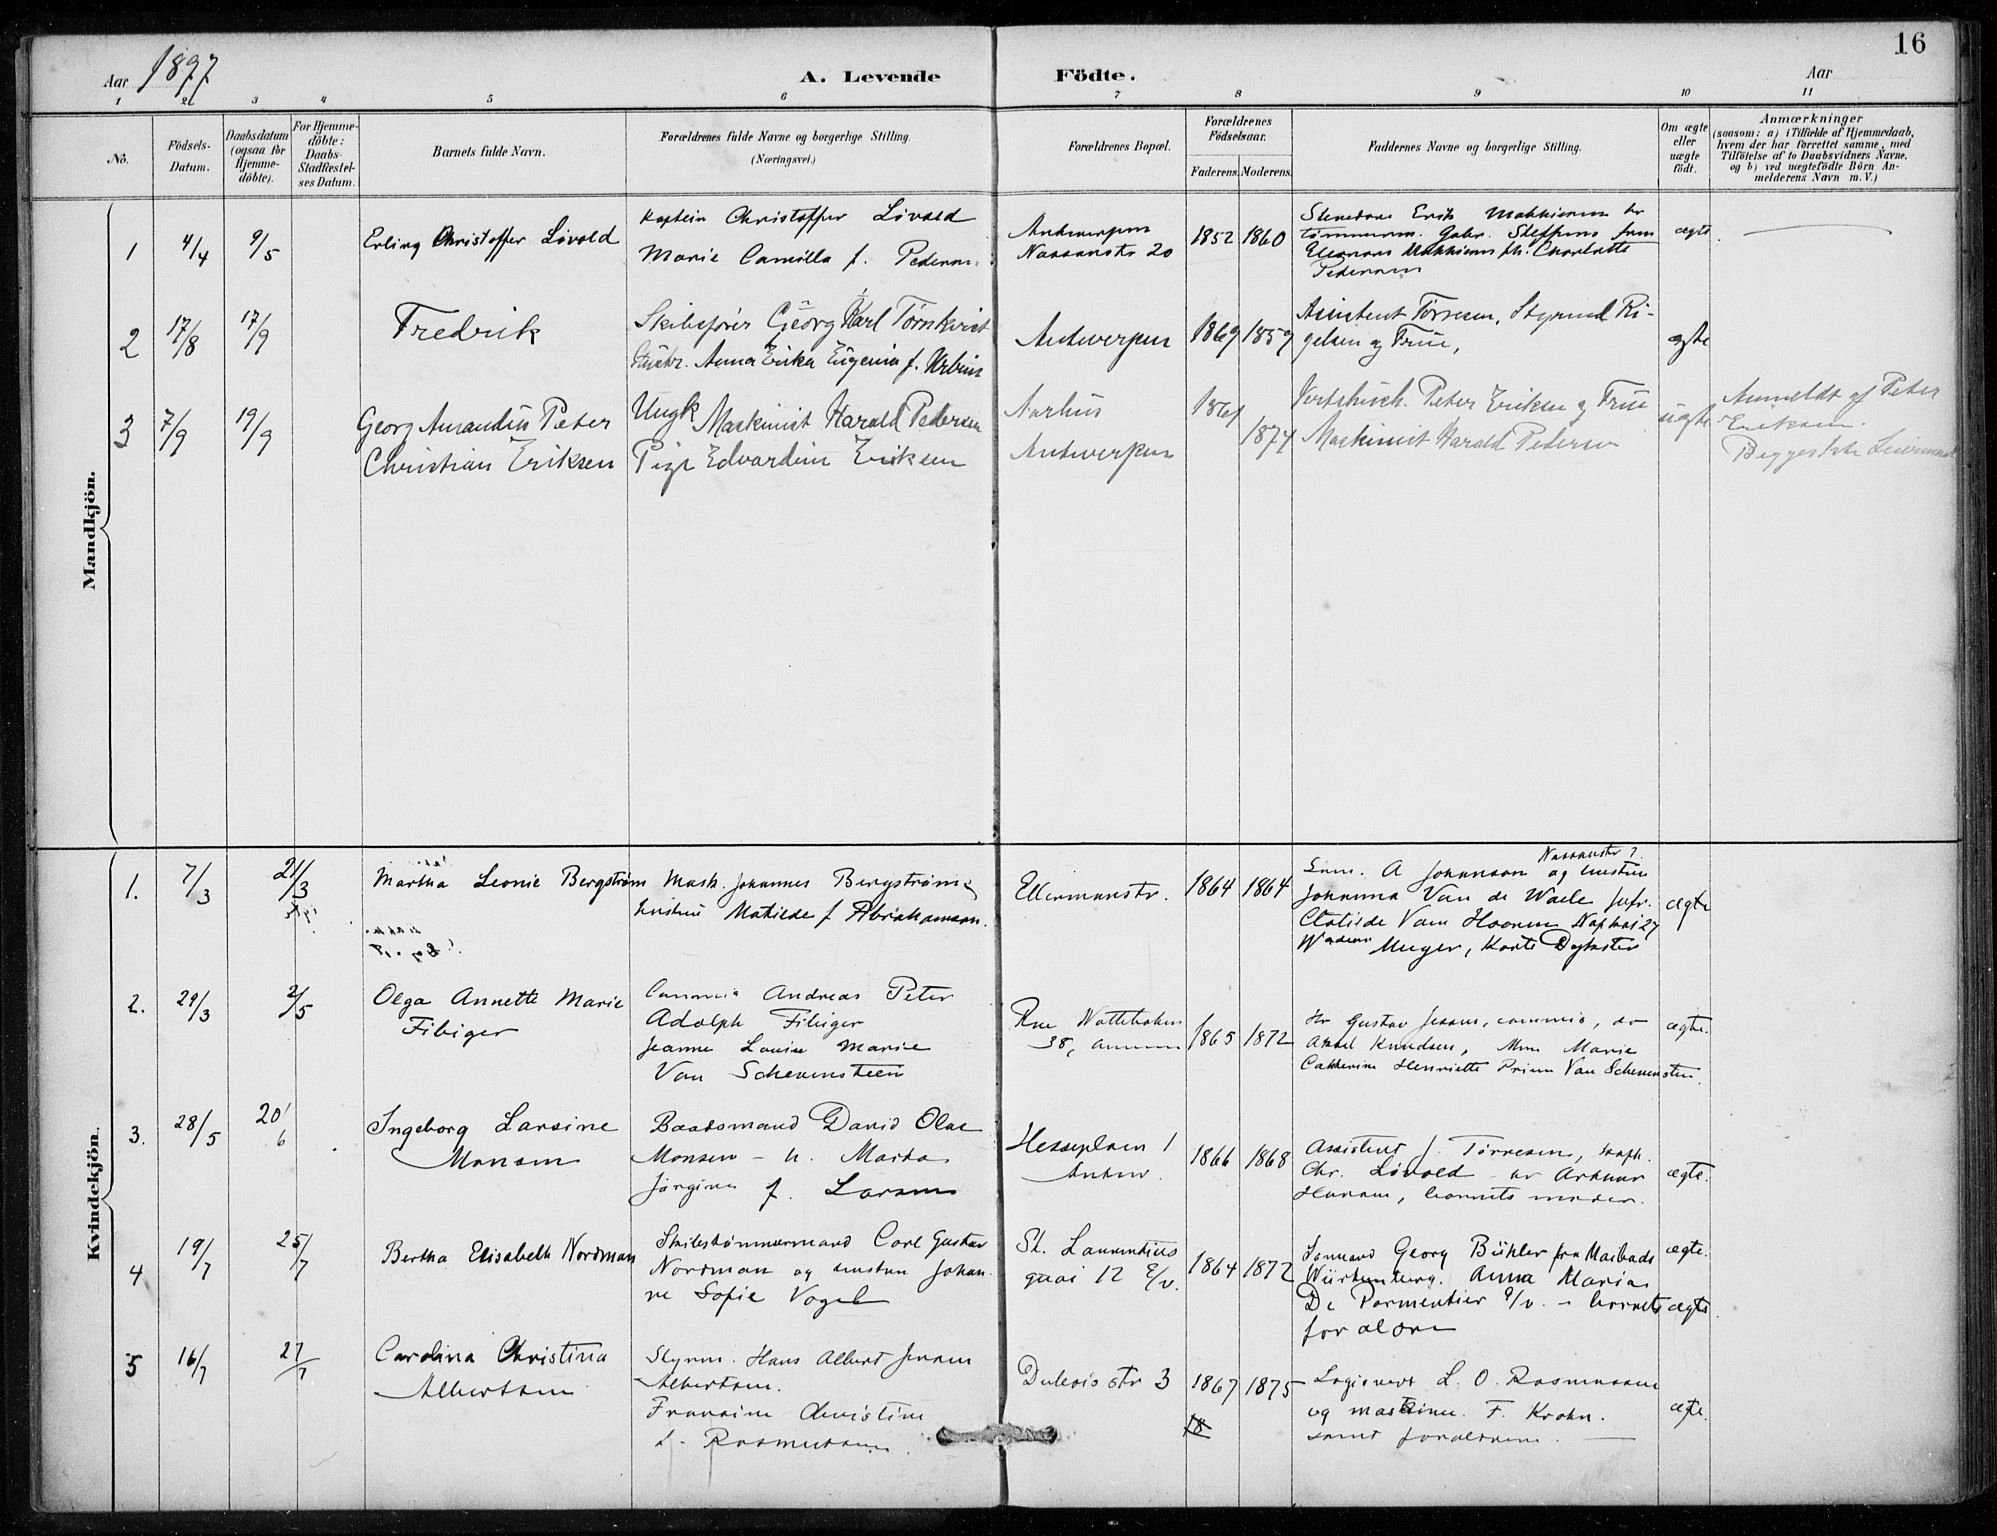 16
Aar 1897
A. Levende Födte.
Aar
1 2 3 4 5 6 7 8 9 10 11
No.
Födsels-Datum.
Daabsdatum (ogsaa for Hjemme-döbte).
For Hjemme-döbte: Daabs-Stadfæstel-ses Datum.
Barnets fulde Navn.
Forældrenes fulde Navne og borgerlige Stilling.
(Næringsvei.)
Forældrenes Bopæl.
Forældrenes Födselsaar.
Faderens. Moderens.
Faddernes Navne og borgerlige Stilling.
Om ægte eller uægte födt.
Anmærkninger
(saasom: a) i Tilfælde af Hjemmedaab,
hvem der har forrettet samme, med
Tilföielse af to Daabsvidners Navne.
og b) ved uægtefödte Börn An-
melderens Navn m. V.)
Mandkjön.
1 4/4 9/5
Erling Christoffer Lövold
Kaptein Christoffer Lövold
Marie Camilla f.
Antwerpen
Nassaustr 20
1852 1860
Erik
Gabr. Steffens
Charlotte
ægte
2 17/8 17/9
Fredrik
Skibsfører Georg Karl Törnkvist
Hustr. Anna Erika Eugenia f.
Antwerpen
1869 1859
Assistent Törresen, Styrmd Ri-
gelsen og Frue,
ægte
3 7/9 19/9
Georg Amandus Peter
Christian Eriksen
Ungk Maskinist Harald Pedersen
Pige Edvardine Eriksen
Aarhus
Antwerpen
1874
Peter Eriksen og Frue
Maskinist Harald Pedersen
uægte
Anmeldt af Peter
Eriksen.
Begges 1ste
Kvindekjön.
1. 7/3 21/3
Martha Leonie Bergström
Mask. Johannes Bergström &
hustru Matilde f Abrahamson.
Ellermanstr.
1864 1864
Nassaustr 7.
A Johanson og hustru
Johanna Van de Waele
Clotilde Van
Meyer,
ægte
2. 29/3 2/5
Olga Annette Marie
Fibiger
Commis Andreas Peter
Adolph Fibiger
Jeanne Louise Marie
Van Schevensteen
Rue
38,
1865 1872
Hr Gustav Jensen, commis,
Aksel Knudsen, Mme Marie
Catherine Henriette Van Schevensteen.
ægte.
3. 28/5 20/6
Ingeborg Larsine
Monsen
Baadsmand David Olai
Monsen – h. Marta
Jörgine f. Larsen
Hesseplein 1
Antw.
1866 1868
Assistent J. Törresen, kapt.
Chr. Lövold – hr Arthur
Hansen, barnets moder.
ægte.
4 19/7 25/7
Bertha Elisabeth Nordman
Skibstömmermand Carl Gustav
Nordman og hustru Johan
ne Sofie Vogel
St. Laurentius
quai 12 E/v.
1864 1872
Sömand Georg Bühler fra
Würtemberg. Anna Maria
De Parmentier E/v. – barnets
foraldre
ægte.
ægte
5 16/7 27/7
Carolina Christina
Albertsen
Styrm. Hans Albert Jensen
Albertsen.
Fransine Christine
f. Rasmussen.
Duboisstr 3
1867 1875
18
Logisvert L. O. Rasmussen
og maskinm. F. Krohn.
samt foraldrene. —
ægte.